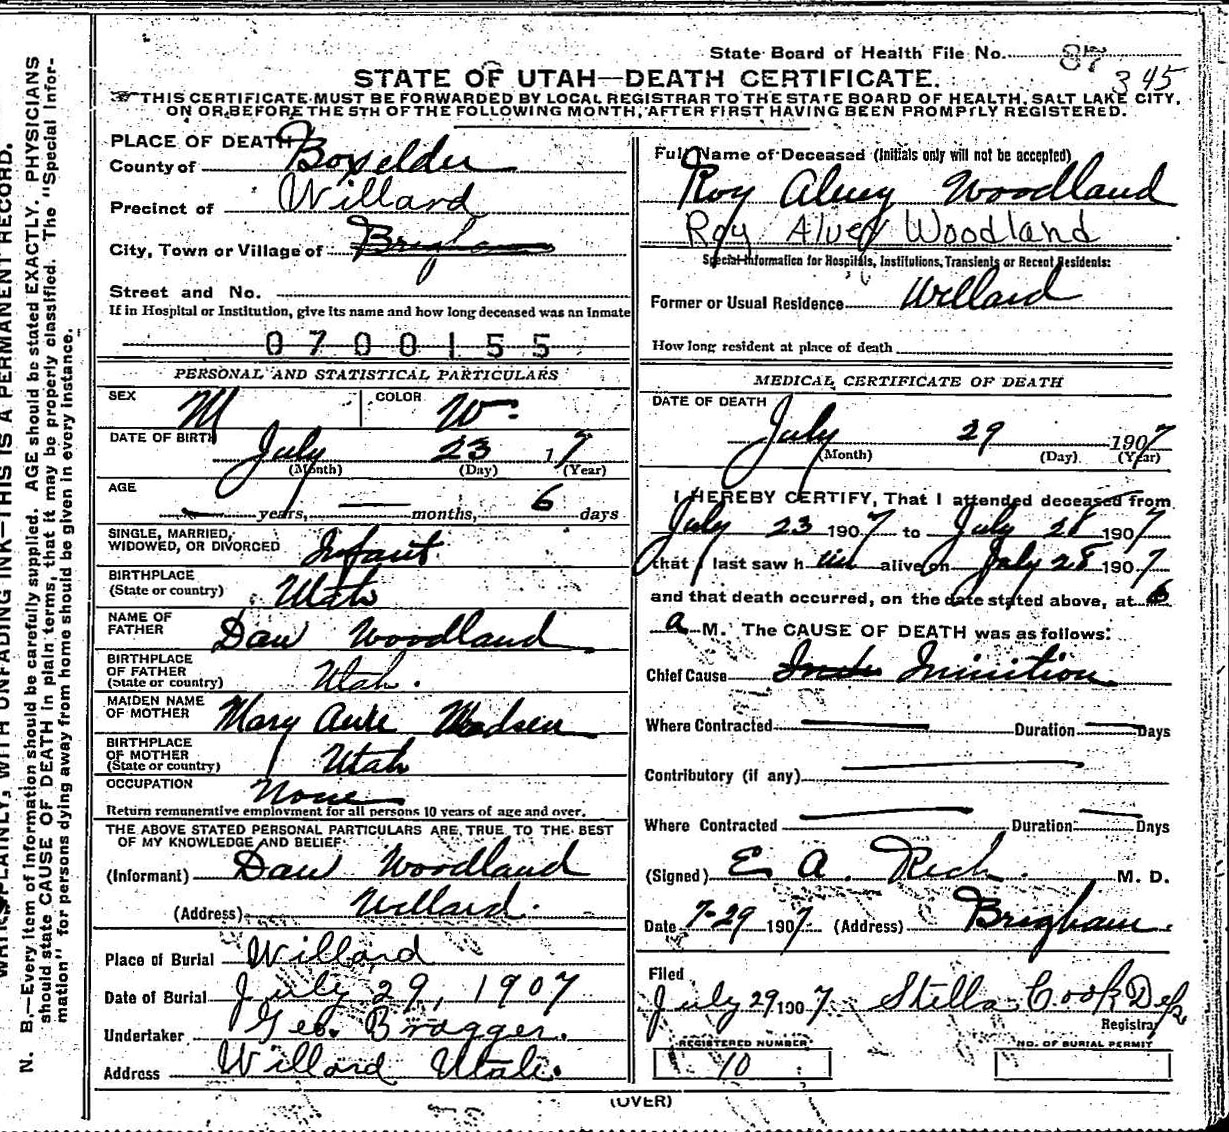 State Board of Health File No. 87
345
STATE OF UTAH—DEATH CERTIFICATE.
THIS CERTIFICATE MUST BE FORWARDED BY LOCAL REGISTRAR TO THE STATE BOARD OF HEALTH, SALT LAKE CITY,
ON OR BEFORE THE 5TH OF THE FOLLOWING MONTH, AFTER FIRST HAVING BEEN PROMPTLY REGISTERED.
PLACE OF DEATH
County of Boxelder
Precinct of Willard
City, Town or Village of Brigham
Street and No.
If in Hospital or Institution, give its name and how long deceased was an Inmate
0700155
PERSONAL AND STATISTICAL PARTICULARS
SEX M COLOR W.
DATE OF BIRTH July 23 1 7
(Month) (Day) (Year)
AGE
years, months, 6 days
SINGLE, MARRIED,
WIDOWED, OR DIVORCED Infant
BIRTHPLACE
(State or country) Utah
NAME OF
FATHER Dan Woodland
BIRTHPLACE
OF FATHER
(State or country) Utah.
MAIDEN NAME
OF MOTHER Mary Madsen
BIRTHPLACE
OF MOTHER
(State or country) Utah
OCCUPATION None
Return remunerative employment for all persons 10 years of age and over.
THE ABOVE STATED PERSONAL PARTICULARS ARE TRUE TO THE BEST
OF MY KNOWLEDGE AND BELIEF
(Informant) Dan Woodland
(Address) Willard.
Place of Burial Willard
Date of Burial July 29, 1907
Undertaker Geo. Bragger.
Address Willard Utah.
Full Name of Deceased (Initials only will not be accepted)
Roy Alvey Woodland
Roy Alvey Woodland
Special Information for Hospitals, Institutions, Transients or Recent Residents:
Former or Usual Residence Willard
How long resident at place of death
MEDICAL CERTIFICATE OF DEATH
DATE OF DEATH
July 29 1907
(Month) (Day) (Year)
I HEREBY CERTIFY, That I attended deceased from
July 23 1907 to July 28 1907
that I last saw h im alive on July 28 1907
and that death occurred, on the date stated above, at 6
a M. The CAUSE OF DEATH was as follows:
Chief Cause Ininition
Where Contracted Duration Days
Contributory (if any)
Where Contracted Duration Days
(Signed) E A. Rich. M. D.
Date 7-29 1907 (Address) Brigham.
Filed
July 29 1907. Stella Cook Dep
Registrar
REGISTERED NUMBER NO. OF BURIAL PERMIT
10
(OVER)
PLAINLY, WITH UNFADING INK—THIS IS A PERMANENT RECORD.
N. B.—Every item of information should be carefully supplied. AGE should be stated EXACTLY. PHYSICIANS
should state CAUSE OF DEATH in plain terms, that it may be properly classified. The "Special Infor-
mation" for persons dying away from home should be given in every instance.